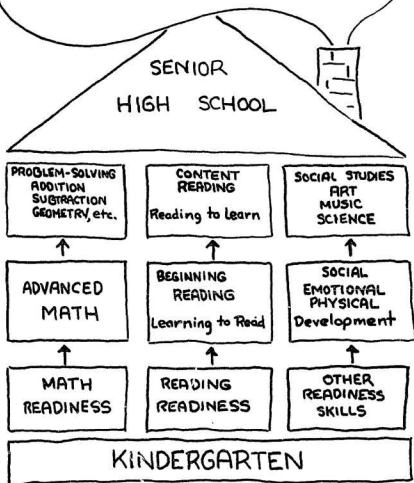 SENIOR
HIGH SCHOOL
PROBLEM-SOLVING
ADDITION
SUBTRACTION
GEOMETRY, etc.
CONTENT
READING
Reading to Learn
SOCIAL STUDIES
ART
MUSIC
SCIENCE
ADVANCED
MATH
BEGINNING
READING
Learning to Read
SOCIAL
EMOTIONAL
PHYSICAL
Development
MATH
READINESS
READING
READINESS
OTHER
READINESS
SKILLS
KINDERGARTEN